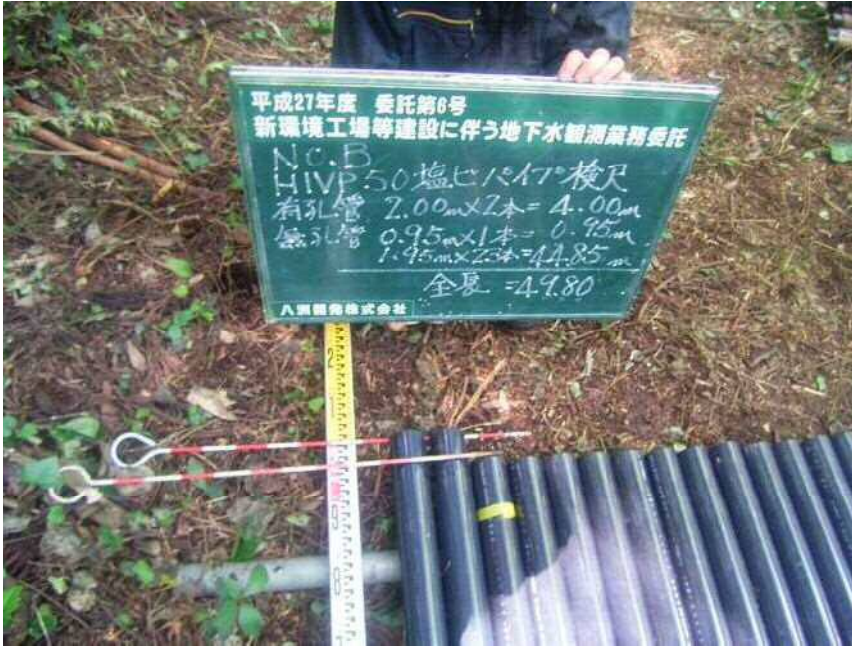 平成27年度 委託第6号
新環境工場等建設に伴う地下水観測業務委託
NO.B
HIVP50塩ビパイプ検尺
有孔管 2.00m×2本=4.00m
無孔管 0.95m×1本=0.95m
1.95m×23本=44.85m
全長=49.80
八洲開発株式会社